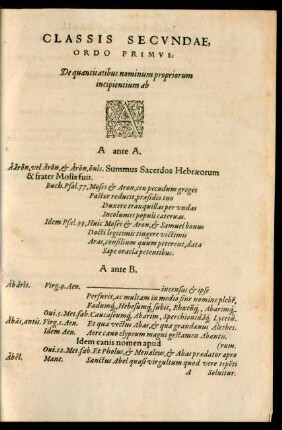 CLASSIS SECVNDAE,
ORDO PRIMVS.
De quantitatibus nominum propriorum
incipientium ab
A
A ante A.
Aărōn, vel Arōn, & Arōn, ōnis. Summus Sacerdos Hebræorum
& frater Mosis fuit.
Buch. Psal. 77, Moses & Aron, ceu pecudum greges
Pastor reducit, præsidio tuo
Duxere tranquillas per vndas
Incolumes populi cateruas.
Idem Psal. 99, Huic Moses & Aron, & Samuel bonus
Docti legitimis tingere victimis
Aras, consilium quum peterent, data
Sape oracla petentibus.
A ante B.
Abăris. Virg. 9. Aen. incensus & ipse
Perfurit, ac multam in medio sine nomine plebē,
Fadumq́, Hebesumq́ subit, Rhœtūq́, Abarimq́.
Oui. 5. Met. fab. Caucaseumq́, Abarim, Sperchionidāq́ Lycetū.
Abās, antis. Virg. 1. Aen. Et qua vectus Abas, & qua grandæuus Alethes.
Idem Aen. Aere cauo clypeum magni gestamen Abantis.
Idem canis nomen apud (rum.
Oui. 12. Met. fab. Et Pholus, & Menaleus, & Abas prædator apro
Abēl. Mant. Sanctus Abel quasi virgultum quod vere tepēti
A Soluitur.